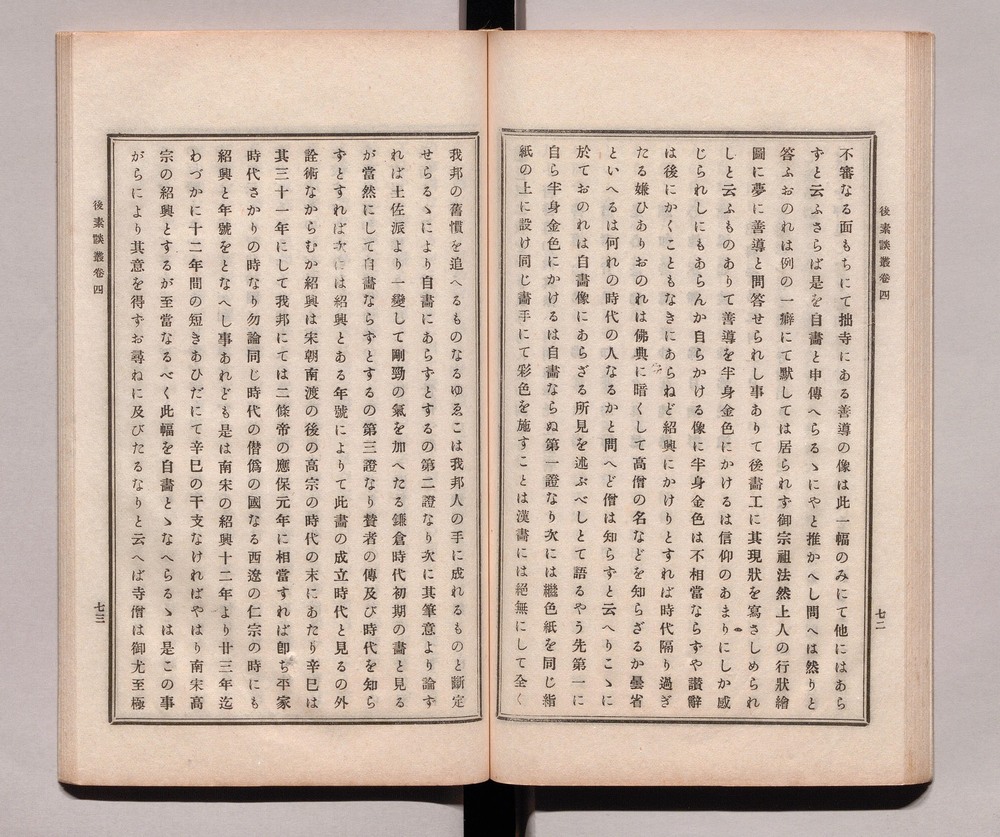 後素談叢卷四
七二
不審なる面もちにて拙寺にある善導の像は此一幅のみにて他にはあら
ずと云ふさらば是を自畫と申傳へらるゝにやと推かへし問へは然りと
答ふおのれは例の一癖にて默しては居られず御宗祖法然上人の行狀繪
圖に夢に善導と問答せられし事ありて後畵工に其現狀を寫さしめられ
しと云ふものありて善導を半身金色にかけるは信仰のあまりにしか感
じられしにもあらんか自らかける像に半身金色は不相當ならずや讃辭
は後にかくこともなきにあらねど紹興にかけりとすれば時代隔り過ぎ
たる嫌ひありおのれは佛典に暗くして高僧の名などを知らざるか曇省
といへるは何れの時代の人なるかと問へど僧は知らずと云へりこゝに
於ておのれは自畵像にあらざる所見を述ぶべしとて語るやう先第一に
自ら半身金色にかけるは自畵ならぬ第一證なり次には繼色紙を同じ絹
紙の上に設け同じ畵手にて彩色を施すことは漢畵には絕無にして全く
我邦の舊慣を追へるものなるゆゑこは我邦人の手に成れるものと斷定
せらるゝにより自畵にあらずとするの第二證なり次に其筆意より論ず
れば土佐派より一變して剛勁の氣を加へたる鎌倉時代初期の畵と見る
が當然にして自畵ならずとするの第三證なり贊者の傳及び時代を知ら
ずとすれば次には紹興とある年號によりて此畵の成立時代と見るの外
詮術なからむか紹興は宋朝南渡の後の高宗の時代の末にあたり辛巳は
其三十一年にして我邦にては二條帝の應保元年に相當すれば卽ち平家
時代さかりの時なり勿論同じ時代の僣僞の國なる西遼の仁宗の時にも
紹興と年號をとなへし事あれども是は南宋の紹興十二年より廿三年迄
わづかに十二年間の短きあひだにて辛巳の干支なければやはり南宋高
宗の紹興とするが至當なるべく此幅を自畵とゝなへらるゝは是この事
がらにより其意を得ずお尋ねに及びたるなりと云へば寺僧は御尤至極
後素談叢卷四
七三